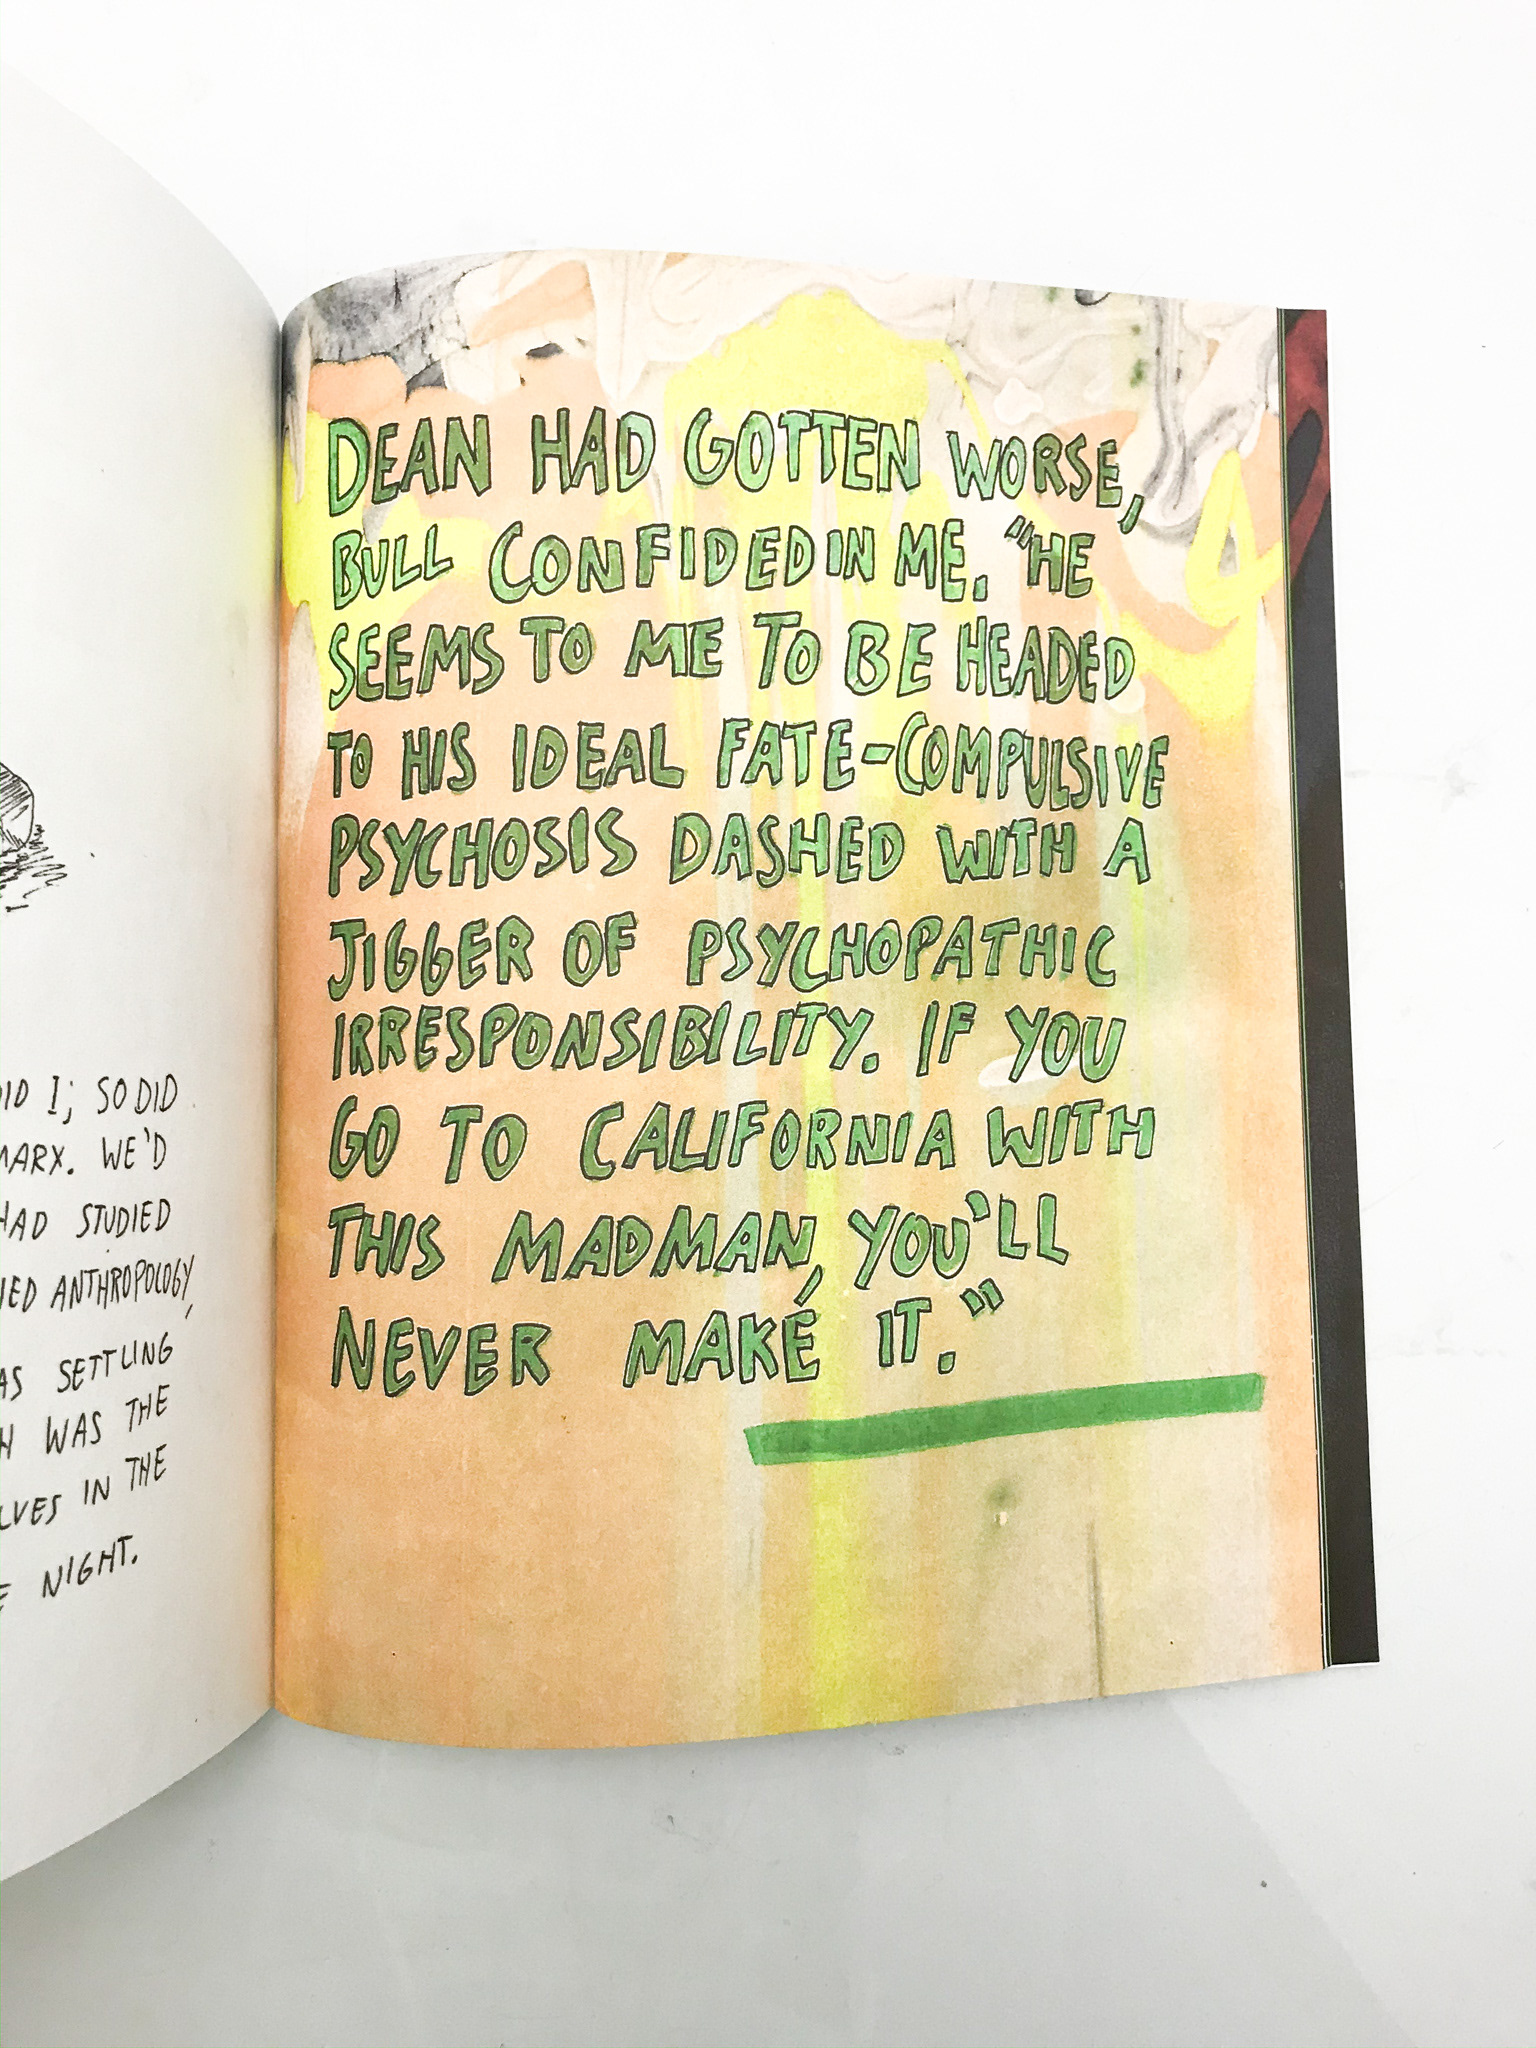 DID I; SO DID
MARX. WE'D
HAD STUDIED
ANTHROPOLOGY,
AS SETTLING
WAS THE
IN THE
NIGHT.
DEAN HAD GOTTEN WORSE,
BULL CONFIDED IN ME. "HE
SEEMS TO ME TO BE HEADED
TO HIS IDEAL FATE-COMPULSIVE
PSYCHOSIS DASHED WITH A
JIGGER OF PSYCHOPATHIC
IRRESPONSIBILITY. IF YOU
GO TO CALIFORNIA WITH
THIS MADMAN, YOU'LL
NEVER MAKE IT."